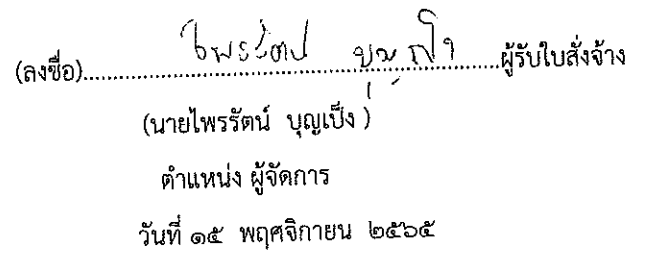 (ลงชื่อ)........ไพรรัตน์........ผู้รับใบสั่งจ้าง
(นายไพรรัตน์ บุญเป็ง )
ตำแหน่ง ผู้จัดการ
วันที่ ๑๕ พฤศจิกายน ๒๕๖๕